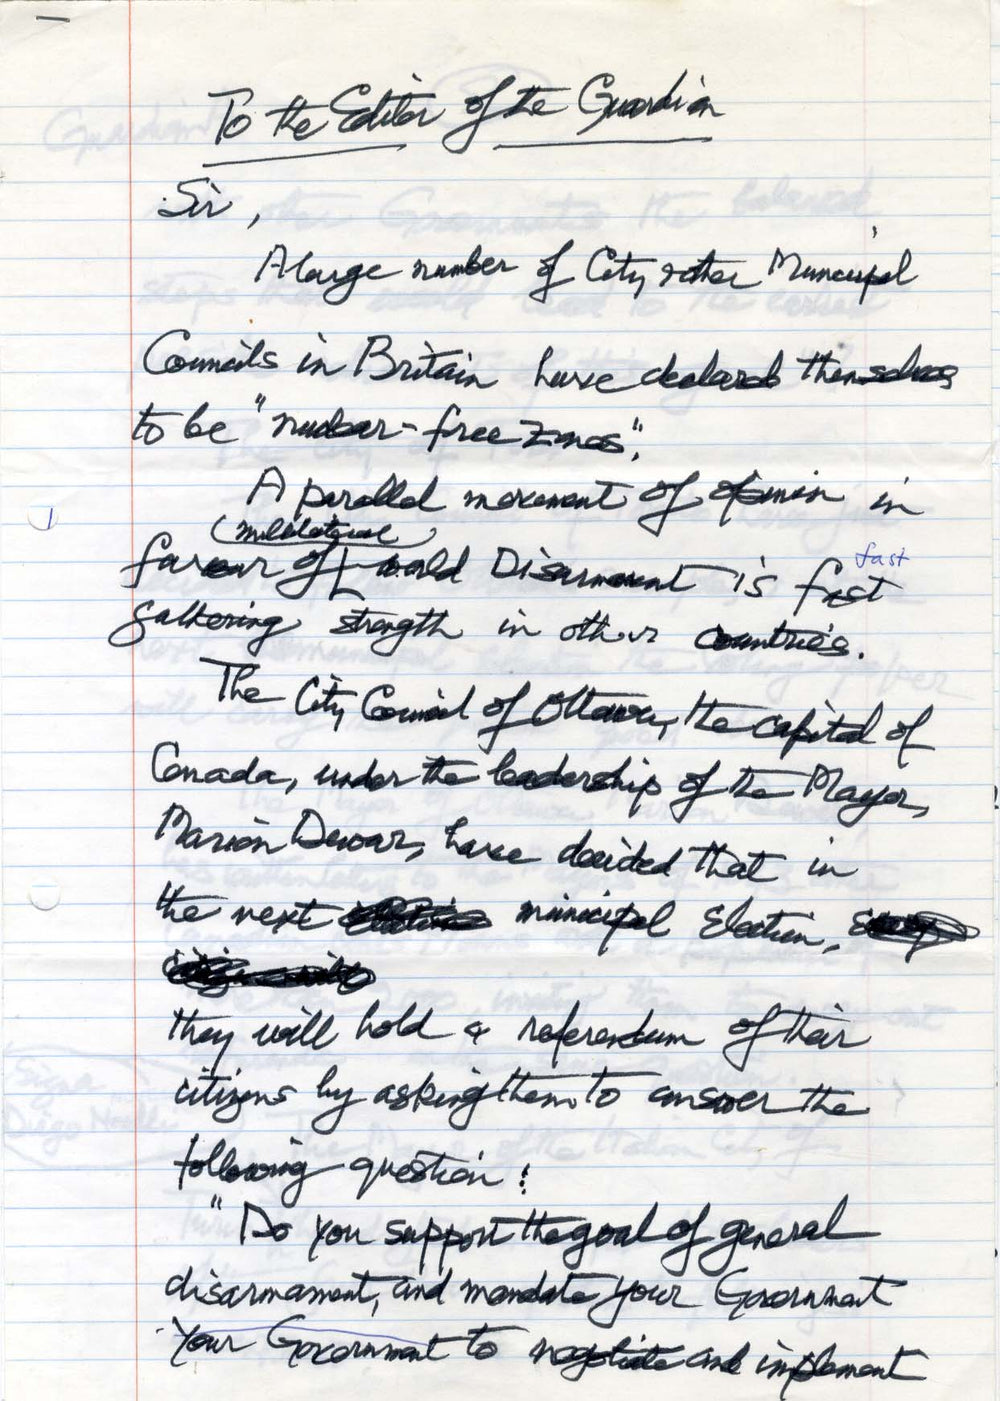 To the Editor of the Guardian
Sir,
A large number of City & other Municipal
Councils in Britain have declared themselves
to be "nuclear-free zones".
A parallel movement of opinion in
(multilateral)
favour of world Disarmament is fast fast
gathering strength in other countries.
The City Council of Ottawa, the capital of
Canada, under the leadership of the Mayor,
Marion Dewar, have decided that in
the next municipal election,
they will hold a referendum of their
citizens by asking them to answer the
following question:
"Do you support the goal of general
disarmament, and mandate your Government
Your Government to negotiate and implement